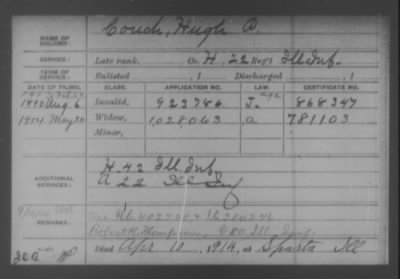 NAME OF SOLDIER: Couch, Hugh P.
SERVICE: Late rank, Co. H, 22 Reg't Ill Inf.
TERM OF SERVICE: Enlisted , 1 Discharged , 1
DATE OF FILING. CLASS. APPLICATION NO. LAW. CERTIFICATE NO.
Aug. 6 Invalid, 923786. J. 868347
1914 May 20 Widow, 1,028063 a 781103
Minor,
ADDITIONAL SERVICES: H. 42 Ill Inf.
A 22 Ill Inf
REMARKS:
Robert H. Thompson, Ill. Inf.
Died Apr 10, 1914, at Sparta Ill